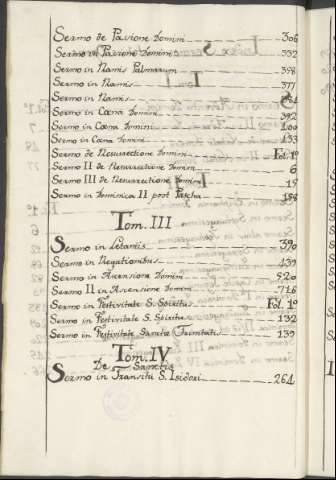 Sermo de Passione Domini 306
Sermo in Passione Domini 332
Sermo in Ramis Palmarum 358
Sermo in Ramis 377
Sermo in Ramis
Sermo in Cœna Domini 392
Sermo in Cœna Domini 400
Sermo in Cœna Domini 433
Sermo de Resurrectione Domini Fol. 1º
Sermo II de Resurrectione Domini 6
Sermo III de Resurrectione Domini 15
Sermo in Dominica II post Pascha 158
Tom. III
Sermo in Letaniis 390
Sermo in Rogationibus 439
Sermo in Ascensione Domini 520
Sermo II in Ascensione Domini 716
Sermo in Festivitate S. Spiritus Fol. 1º
Sermo in Festivitate S. Spiritus 132
Sermo in Festivitate Sanctæ Trinitatis 139
Tom. IV
De Sanctis
Sermo in Transitu S. Isidori 264